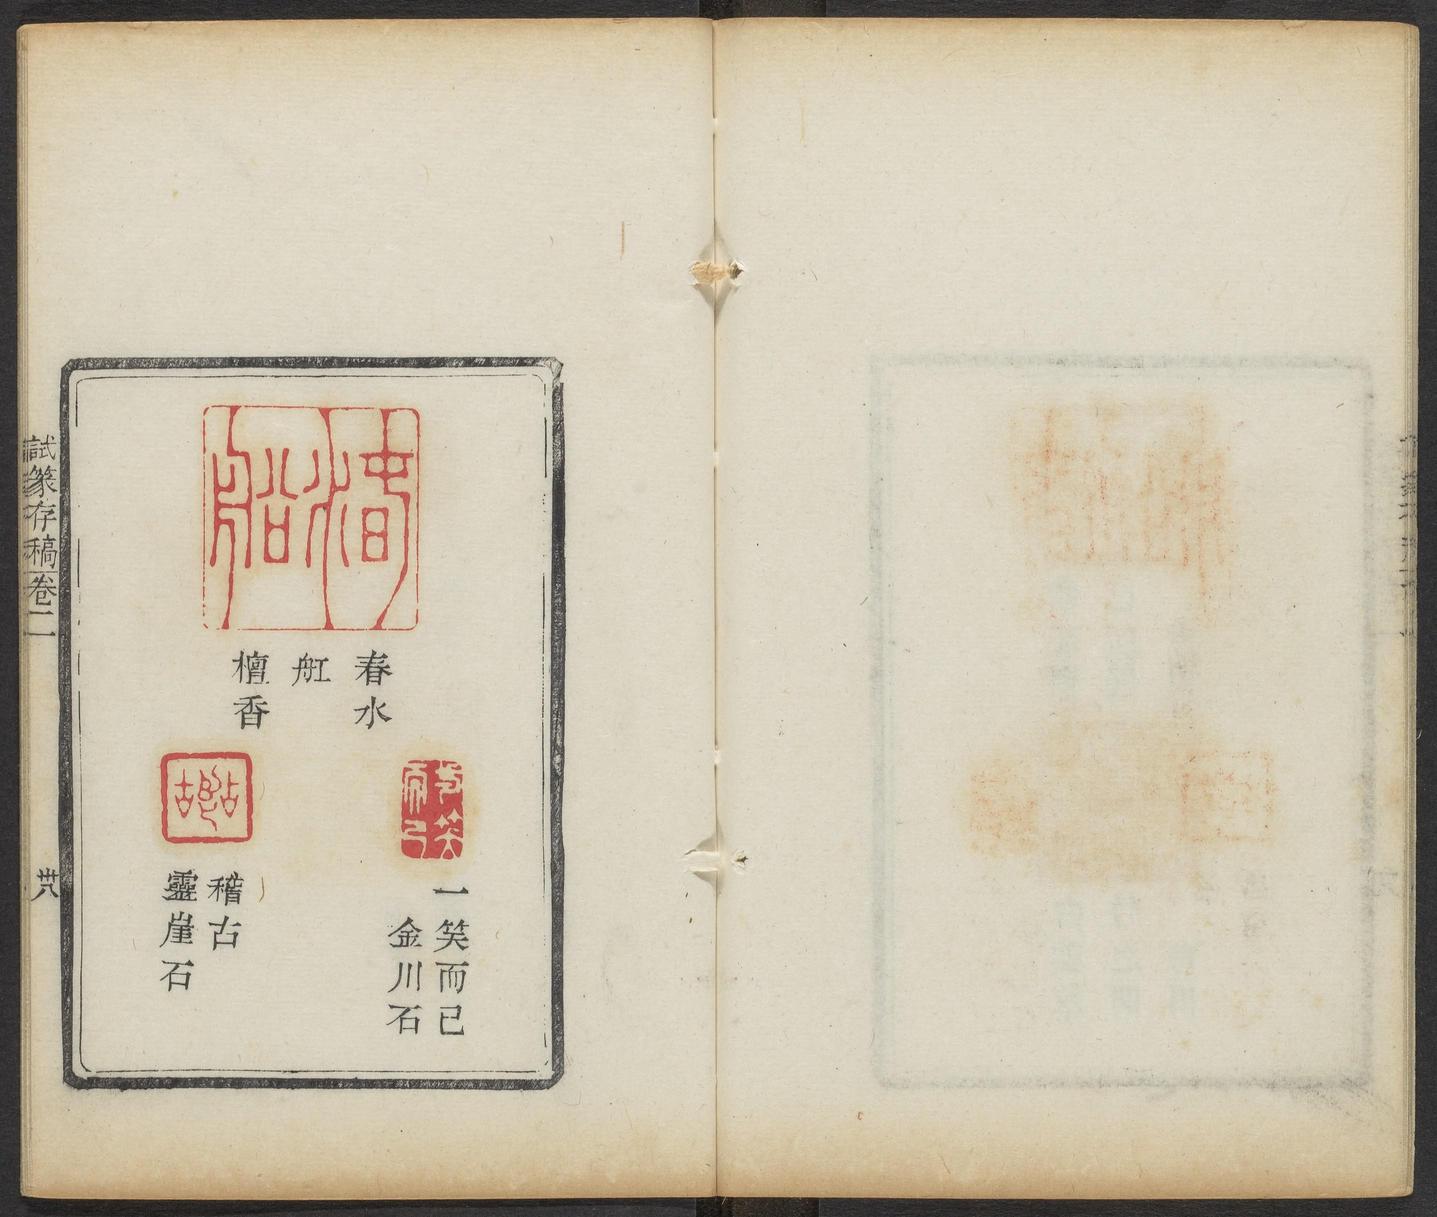 春水
舡
檀香
一笑而已
金川石
稽古
靈崖石
試篆存稿
卷二
卅八